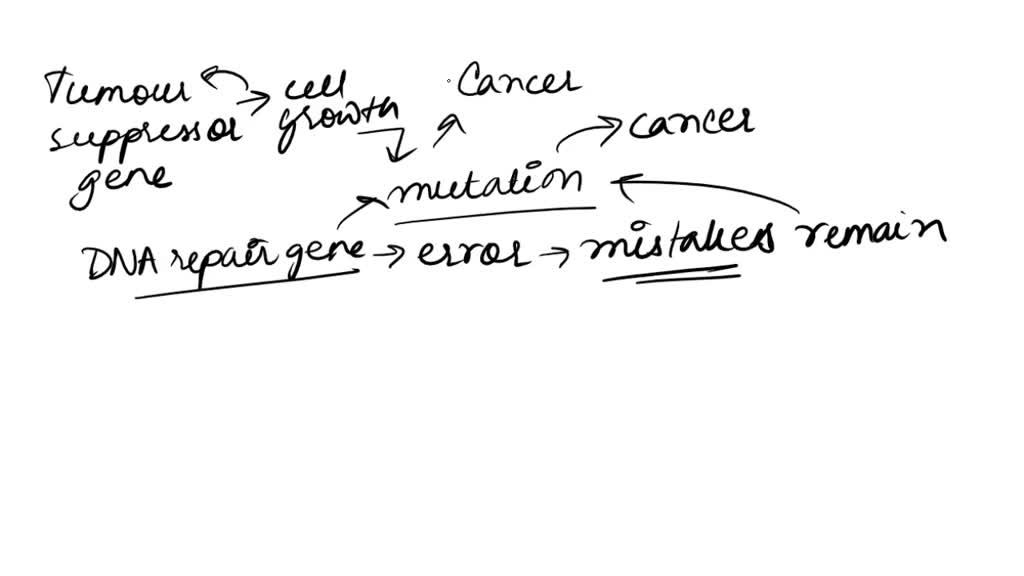 Tumour → cell
suppressor growth
gene
Cancer
→ cancer
mutation
DNA repair gene → error → mistakes remain